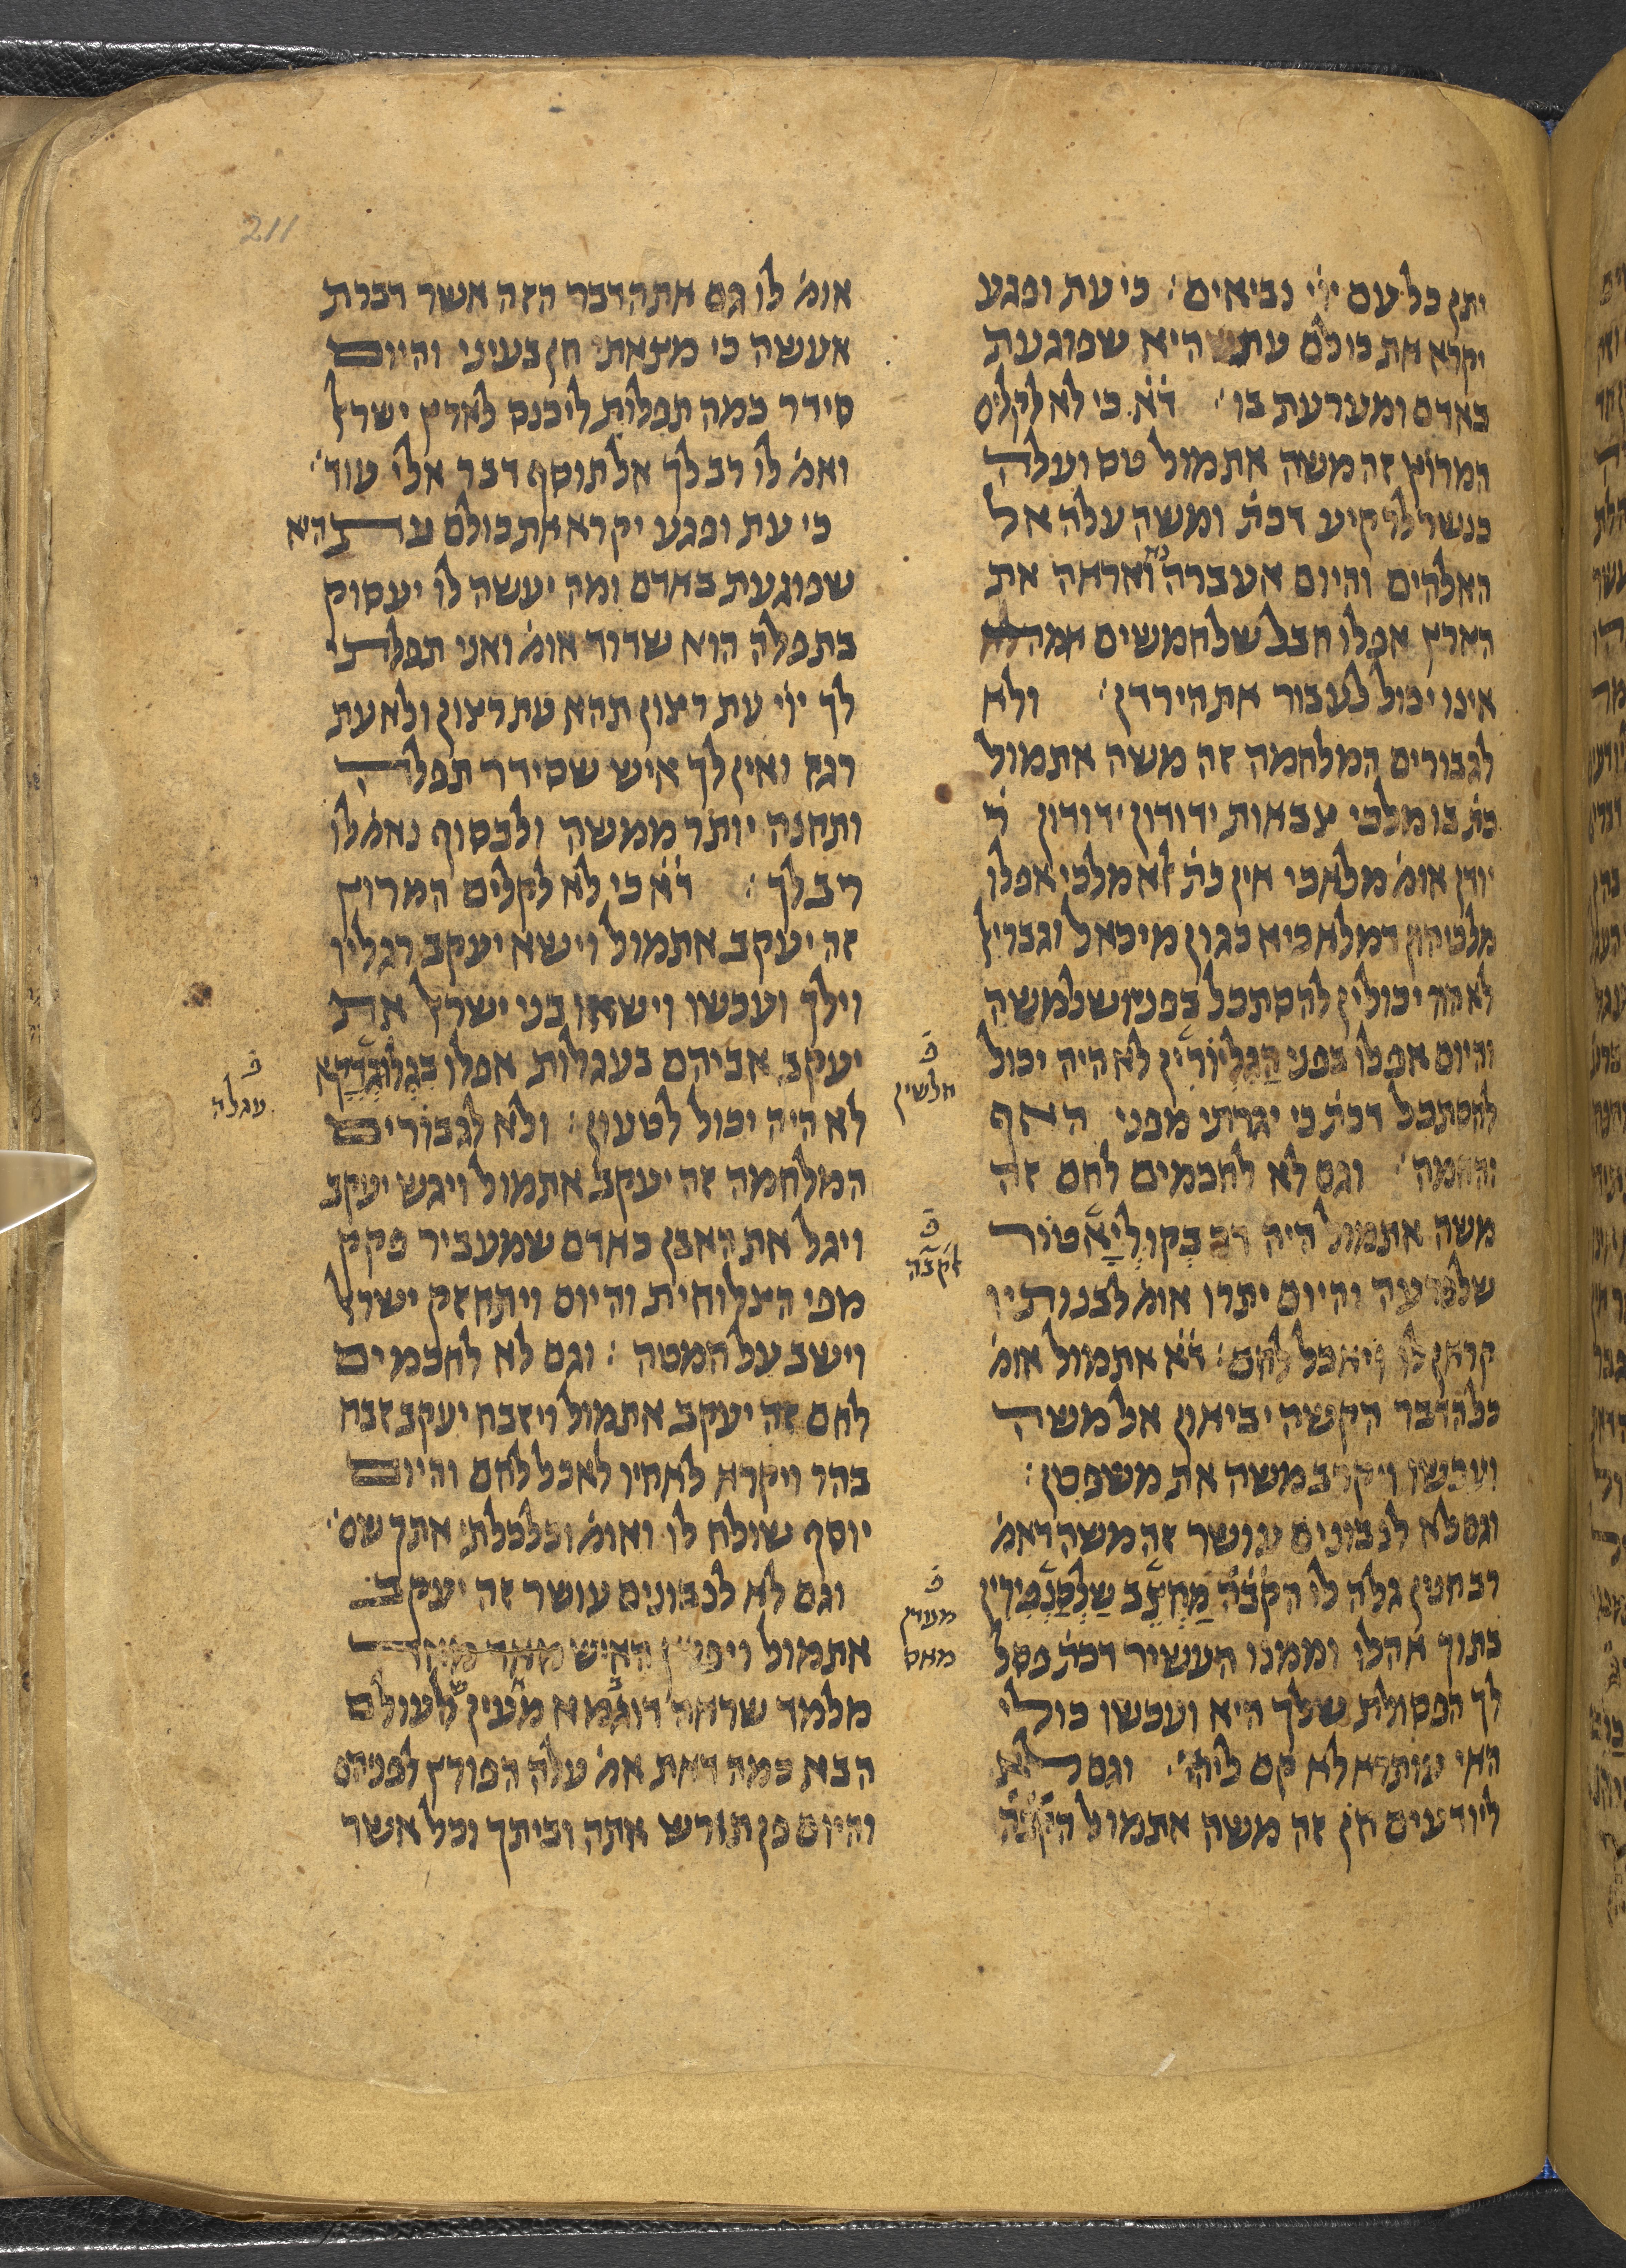 211
יתן כל עם יי֗ נביאים׃ כי עת ופגע
יקרא את כולם עת היא שפוגעת
באדם ומערעת בו׳ ד֗א֗ כי לא לקלים
המרוץ זה משה אתמול טס ועלה
כנשר לרקיע דכת֗ ומשה עלה אל
האלהים והיום אעברה נא ואראה את
הארץ אפלו חבל שלחמשים אמה
אינו יכול לעבור את הירדן׳ ולא
לגבורים המלחמה זה משה אתמול
כת֗ בו מלכי צבאות ידודון ידודון ר֗
יודן אומ֗ מלאכי אין כת֗ אלא מלכי אפלו
מלכיהון דמלאכיא כגון מיכאל וגבריאל
לא היו יכולין להסתכל בפניו שלמשה
והיום אפלו בפני הַגְלְיוֹרִין לא היה יכול
להסתכל דכת֗ כי יגרתי מפני האף
והחמה׳ וגם לא לחכמים לחם זה
משה אתמול היה רב בְקוֹלְיָאָטוֹר
שלפרעה והיום יתרו אומ֗ לבנותיו
קראן לו ויאכל לחם׃ ד֗א֗ אתמול אומ֗
כל הדבר הקשה יביאון אל משה
ועכשו ויקרב משה את משפטן׃
וגם לא לנבונים עושר זה משה דאמ֗
רב חנין גלה לו הק֗ב֗ה֗ מַחְצֵב שֶלְסַנְפִּירִין
בתוך אהלו וממנו העשיר דכת֗ פסל
לך הפסולת שלך היא ועכשו כולי
האי עותרא לא קם ליה׳ וגם לא
ליודעים חן זה משה אתמול הק֗ב֗ה֗
פ֗
חלשין
פ֗
פ֗
מאס
אומ֗ לו גם את הדבר הזה אשר דברת
אעשה כי מצאת חן בעיני והיום
סידר כמה תפלות ליכנס לארץ ישראל
ואמ֗ לו רב לך אל תוסף דבר אלי עוד׳
כי עת ופגע יקרא את כולם עת היא
שפוגעת באדם ומה יעשה לו יעסוק
בתפלה הוא שדוד אומ֗ ואני תפלתי
לך יוי עת רצון תהא עת רצון ולא עת
רגז ואין לך איש שסידר תפלה
ותחנה יותר ממשה ולבסוף נאמ֗ לו
רב לך׃ ד֗א֗ כי לא לקלים המרוץ
זה יעקב אתמול וישא יעקב רגליו
וילך ועכשו וישאו בני ישראל את
יעקב אביהם בעגלות אפלו
לא היה יכול לטעון׃ ולא לגבורים
המלחמה זה יעקב אתמול ויגש יעקב
ויגל את האבן כאדם שמעביר פקק
מפי הצלוחית והיום ויתחזק ישראל
וישב על המטה׃ וגם לא לחכמים
לחם זה יעקב אתמול ויזבח יעקב זבח
בהר ויקרא לאחיו לאכל לחם והיום
יוסף שולח לו ואומ֗ וכלכלתי אתך שם׳
וגם לא לנבונים עושר זה יעקב
אתמול ויפרץ האיש מאד מאד
מלמד שראה דוגמא מעין לעולם
הבא כמה דאת אמ֗ עלה הפורץ לפניהם
והיום פן תורש אתה וביתך וכל אשר
פ֗
עגלה